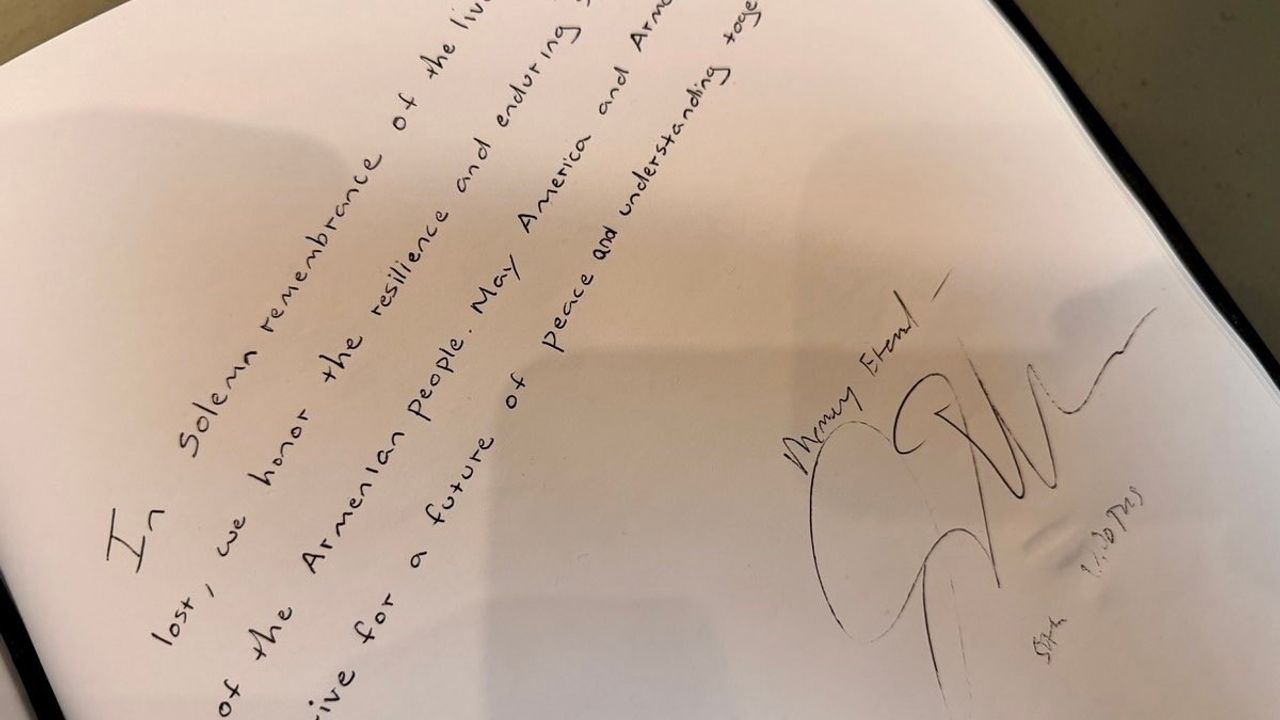 In Solemn remembrance of the
lost, we honor the resilience and enduring
of the Armenian people. May America and
for a future of peace and understanding
Memory Eternal -